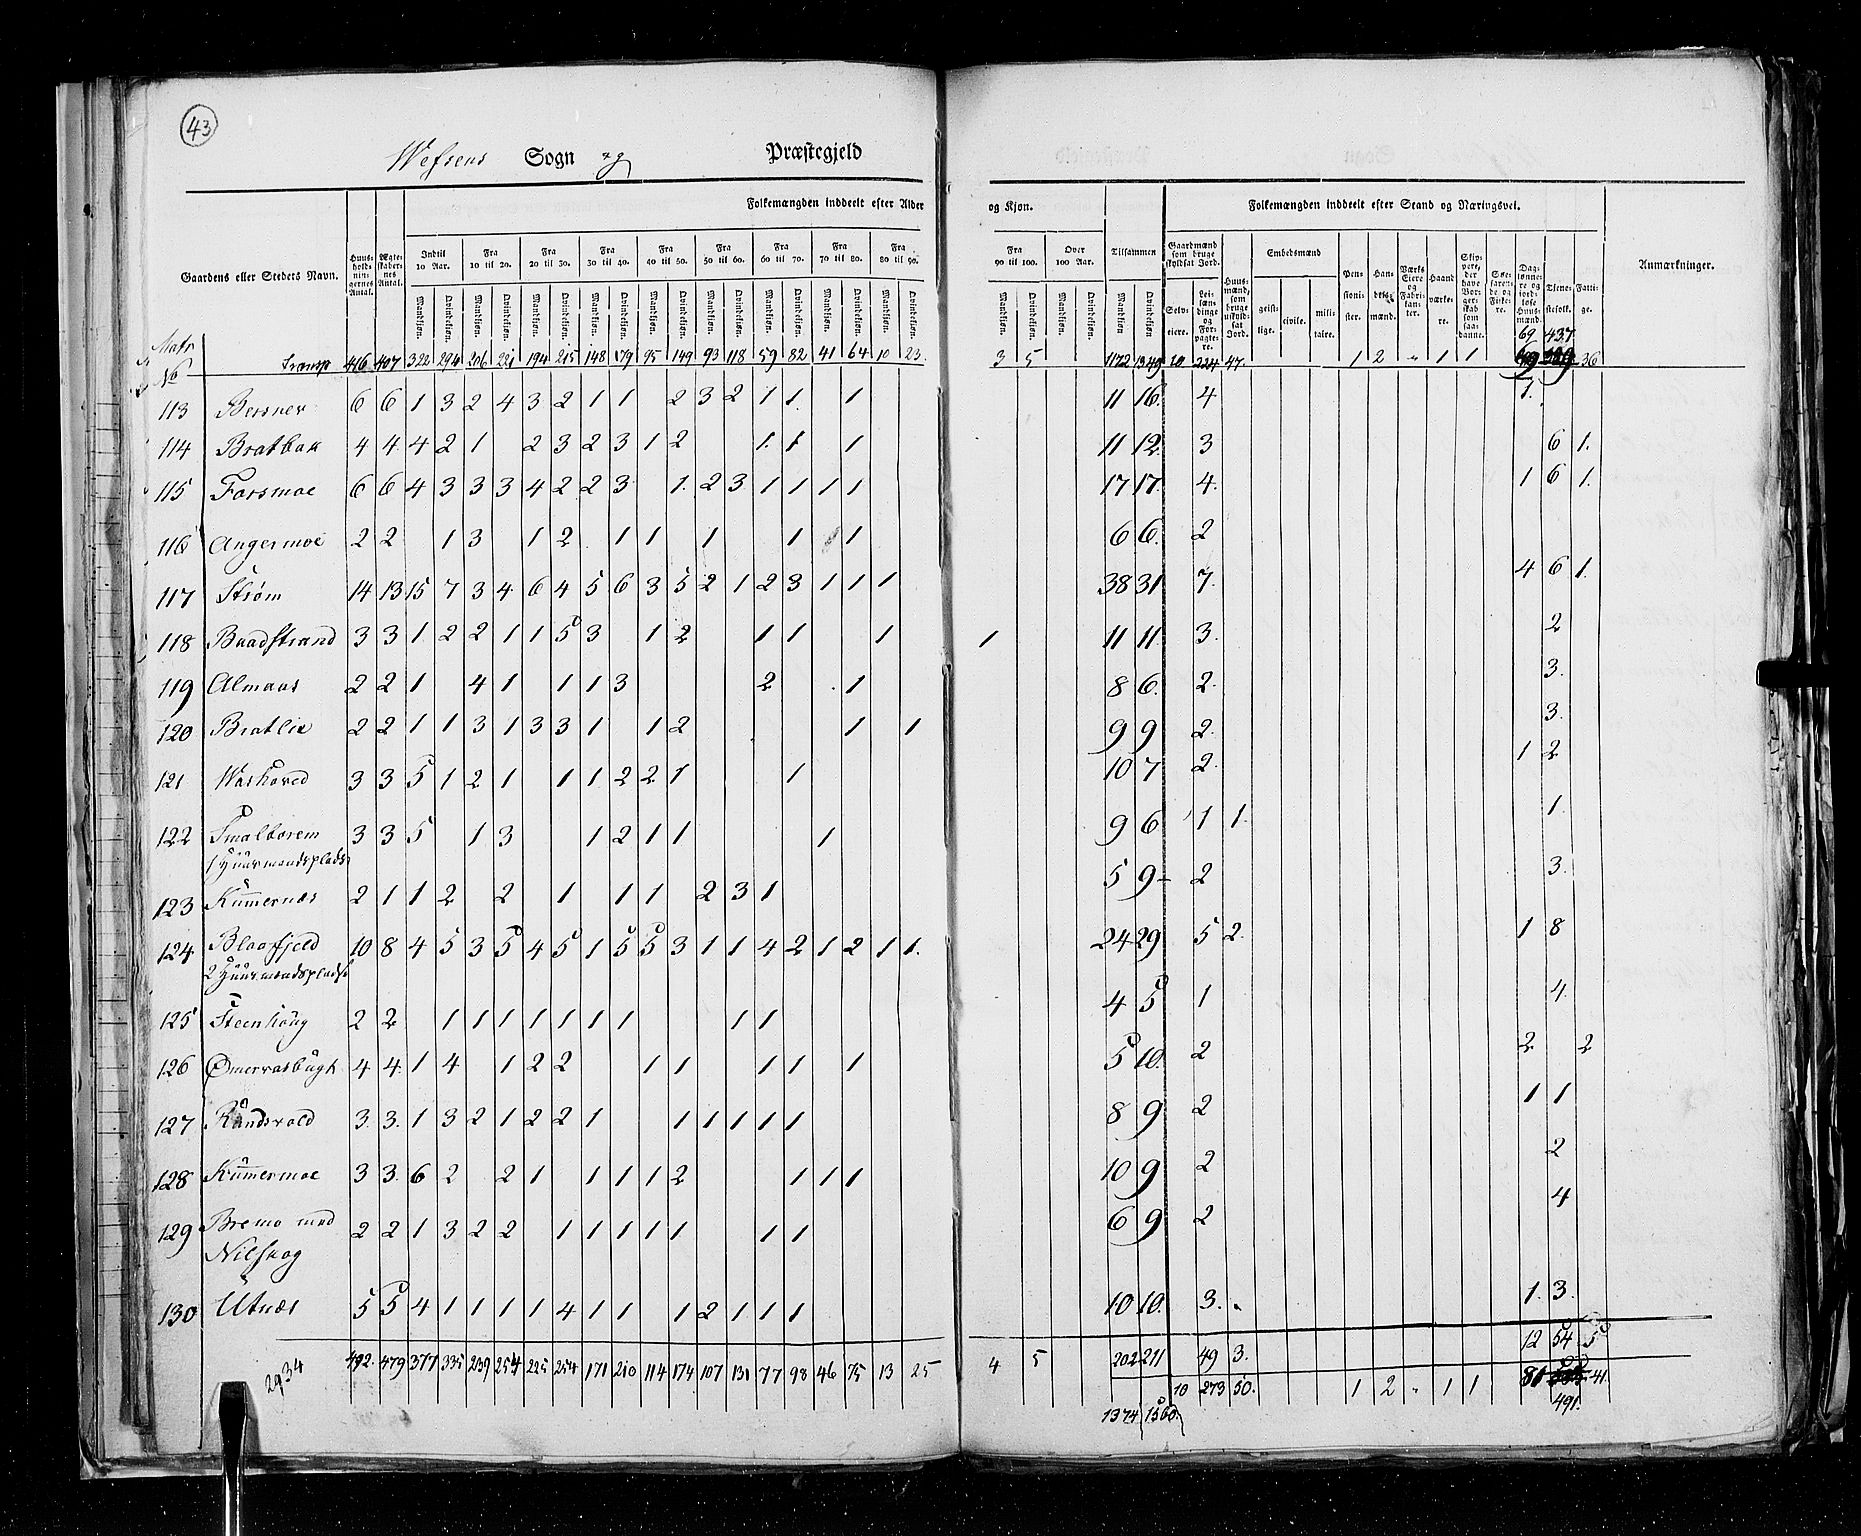 43
Wefsens Sogn og Præstegjeld
Folkemængden inddeelt efter Alder og Kjøn. Folkemængden inddeelt efter Stand og Næringsvei.
Gaardens eller Steders Navn. Huusholdningernes Antal. Ægteskabernes Antal. Indtil 10 Aar. Fra 10 til 20. Fra 20 til 30. Fra 30 til 40. Fra 40 til 50. Fra 50 til 60. Fra 60 til 70. Fra 70 til 80. Fra 80 til 90. Fra 90 til 100. Over 100 Aar. Tilsammen Gaardmænd som bruge skyldsat Jord. Huusmænd, som bruge uskyldsat Jord. Embedsmænd Pensionister. Handelsmænd. Værks Eiere og Fabrikanter. Haandværkere. Skippere, der have Borgerskab som saadanne. Søefarende og Fiskere. Daglønnere og jordløse Huusmænd. Tjenestefolk. Fattige. Anmærkninger.
Mandkjøn. Qvindekjøn. Selveiere. Leilændinge og Forpagtere. geistlige. civile. militaire.
69 437
Matr No Transp 416 407 322 294 206 221 194 215 148 179 95 149 93 118 59 82 41 64 10 23. 3 5 1172 1349 10 224 47. 1 2 " 1 1 36
113 Besner 6 6 1 3 2 4 3 2 1 1 2 3 2 1 1. 1 11 16. 4 1.
114 Bratbak 4 4 4 2 1 2 3 2 3 1 2 1. 1 1 11 12. 3 6 1.
115 Forsmoe 6 6 4 3 3 3 4 2 2 3 1. 2 3 1 1 1 1 17 17. 4. 1 6 1.
116 Angermoe 2 2 1 3 1 2 1 1 1 1 1 6 6. 2
117 Strøm 14 13 15 7 3 4 6 4 5 6 3 5 2 1 2 3 1 1 1 38 31 7. 4 6 1.
118 Baadstrand 3 3 1. 2 2 1 1 5 3 1 2 1 1 1 1 11 11. 3. 2
119 Almaas 2 2 1 4 1 1 1 3 2 1 8 6. 2. 3.
120 Bratlie 2 2 1 1 3 1 3 3 1 1 2 1 1 9 9 2. 3.
121 3 3 5 1 2 1 1 1 2 2 1 1 10 7 2. 1 2
122 Smalborem 3 3 5 1 3 1 2 1 1 1 9 6 1 1. 1.
1 Huusmandsplads
123 Kumernæs 2 1 1 2 2 1 1 1 2 3 1 5 9 2 3.
124. Blaafjeld 10 8 4 5 3 5 4 5 1 5 5 3 1 1 4 2 1 2 1 1. 24 29 5 2. 1 8
2 Huusmandspladse
125 Steenhoug 2 2 1 1 1 1 1 1 1 1 1 4 5 1 4.
126 4 4. 1 4 1 2 2 1 1 1 1 1 5 10. 2 2 2
127 3. 3. 1 3 2 1 2 2 1 1 1 1 1 1 8 9 2 1 1
128 Kumermoe 3 3. 6 2 2 1 1 1 1 2 1 1 1 10 9 2 2
129 Bremo med 2 2 1 3 2 2 1 1 1 1 1 1 1 6 9 2 4
Nilskog
130 Utnæs 5 5 4 1 1 1 1 4 1 1 1 2 1 1 1 10 10. 3. 1. 3.
12 54 5
2934 492. 479 377 335 239 254 225 254 171 210 114 174 107 131 77 98 46 75 13 25 4 5 202 211 49 3.
10 273 50. 1 2 " 1 1 81 41.
1374 1560. 491.